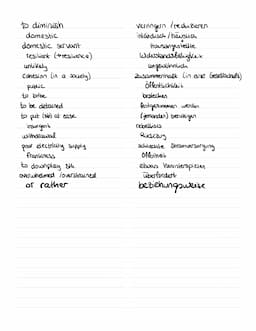 to diminish verringern / reduzieren
domestic inländisch / häuslich
domestic servant Hausangestellte
resilient (→resilience) Widerstandsfähigkeit
unlikely ungewöhnlich
cohesion (in a society) Zusammenhalt (in einer Gesellschaft)
public Öffentlichkeit
to bribe bestechen
to be detained festgenommen werden
to put (sb) at ease (jemanden) beruhigen
insurgent rebellisch
withdrawal Rückzug
poor electricity supply schlechte Stromversorgung
frankness Offenheit
to downplay sth. etwas herunterspielen
overwhelmed / overstrained überfordert
or rather beziehungsweise